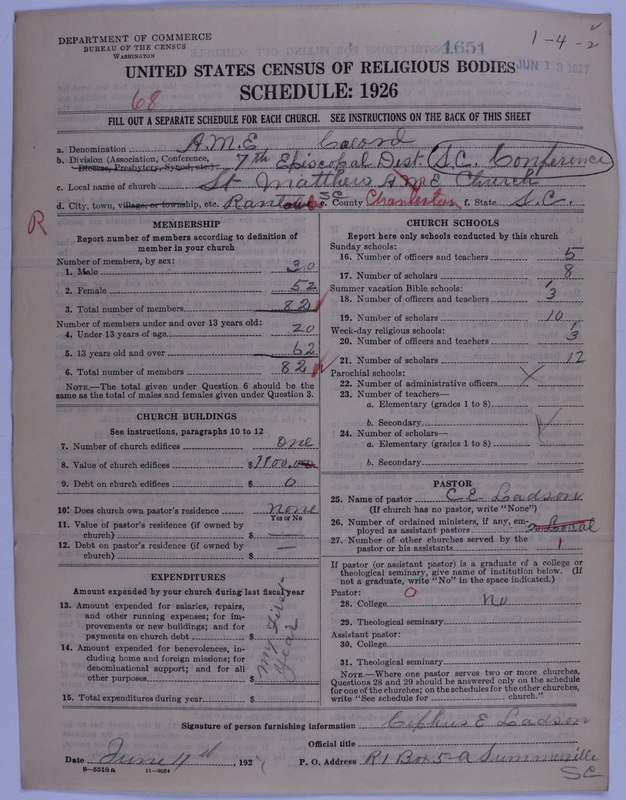 DEPARTMENT OF COMMERCE
BUREAU OF THE CENSUS
WASHINGTON
1651
1-4-2
JUN 13 1927
UNITED STATES CENSUS OF RELIGIOUS BODIES
SCHEDULE: 1926
68
FILL OUT A SEPARATE SCHEDULE FOR EACH CHURCH. SEE INSTRUCTIONS ON THE BACK OF THIS SHEET
a. Denomination A.M.E. Calord
b. Division (Association, Conference, Diocese, Presbytery, Synod, etc.) 7th Episcopal Dist. S.C. Conference
c. Local name of church St Matthew A.M.E Church
d. City, town, village, or township, etc. SC e. County Charleston f. State S.C.
R
MEMBERSHIP
Report number of members according to definition of
member in your church
Number of members, by sex:
1. Male 30
2. Female 52
3. Total number of members 82
Number of members under and over 13 years old:
4. Under 13 years of age 20
5. 13 years old and over 62
6. Total number of members 82
NOTE.—The total given under Question 6 should be
same as the total of males and females given under Question 3.
CHURCH BUILDINGS
See instructions, paragraphs 10 to 12
7. Number of church edifices one
8. Value of church edifices $
9. Debt on church edifices $ 0
10. Does church own pastor's residence none
Yes or No
11. Value of pastor's residence (if owned by
church) $ —
12. Debt on pastor's residence (if owned by
church) $ —
EXPENDITURES
Amount expended by your church during last fiscal year
13. Amount expended for salaries, repairs,
and other running expenses; for im-
provements or new buildings; and for
payments on church debt $
14. Amount expended for benevolences, in-
cluding home and foreign missions; for
denominational support; and for all
other purposes $
15. Total expenditures during year $
my first
year
CHURCH SCHOOLS
Report here only schools conducted by this church
Sunday schools:
16. Number of officers and teachers 5
17. Number of scholars 8
Summer vacation Bible schools:
18. Number of officers and teachers 3
19. Number of scholars 10
Week-day religious schools:
20. Number of officers and teachers 3
21. Number of scholars 12
Parochial schools:
22. Number of administrative officers X
23. Number of teachers—
a. Elementary (grades 1 to 8)
b. Secondary
24. Number of scholars—
a. Elementary (grades 1 to 8)
b. Secondary
PASTOR
25. Name of pastor C E Ladson
(If church has no pastor, write "None")
26. Number of ordained ministers, if any, em-
ployed as assistant pastors
27. Number of other churches served by the
pastor or his assistants 1
If pastor (or assistant pastor) is a graduate of a college or
theological seminary, give name of institution below. (If
not a graduate, write "No" in the space indicated.)
Pastor: 0
28. College No
29. Theological seminary
Assistant pastor:
30. College
31. Theological seminary
NOTE.—Where one pastor serves two or more churches,
Questions 28 and 29 should be answered only on the schedule
for one of the churches; on the schedules for the other churches,
write "See schedule for church."
Signature of person furnishing information Cephus E Ladson
Official title
Date June 4th, 192 P. O. Address R1 Box 5-a Summerville
SC
8—5518a 11—9034